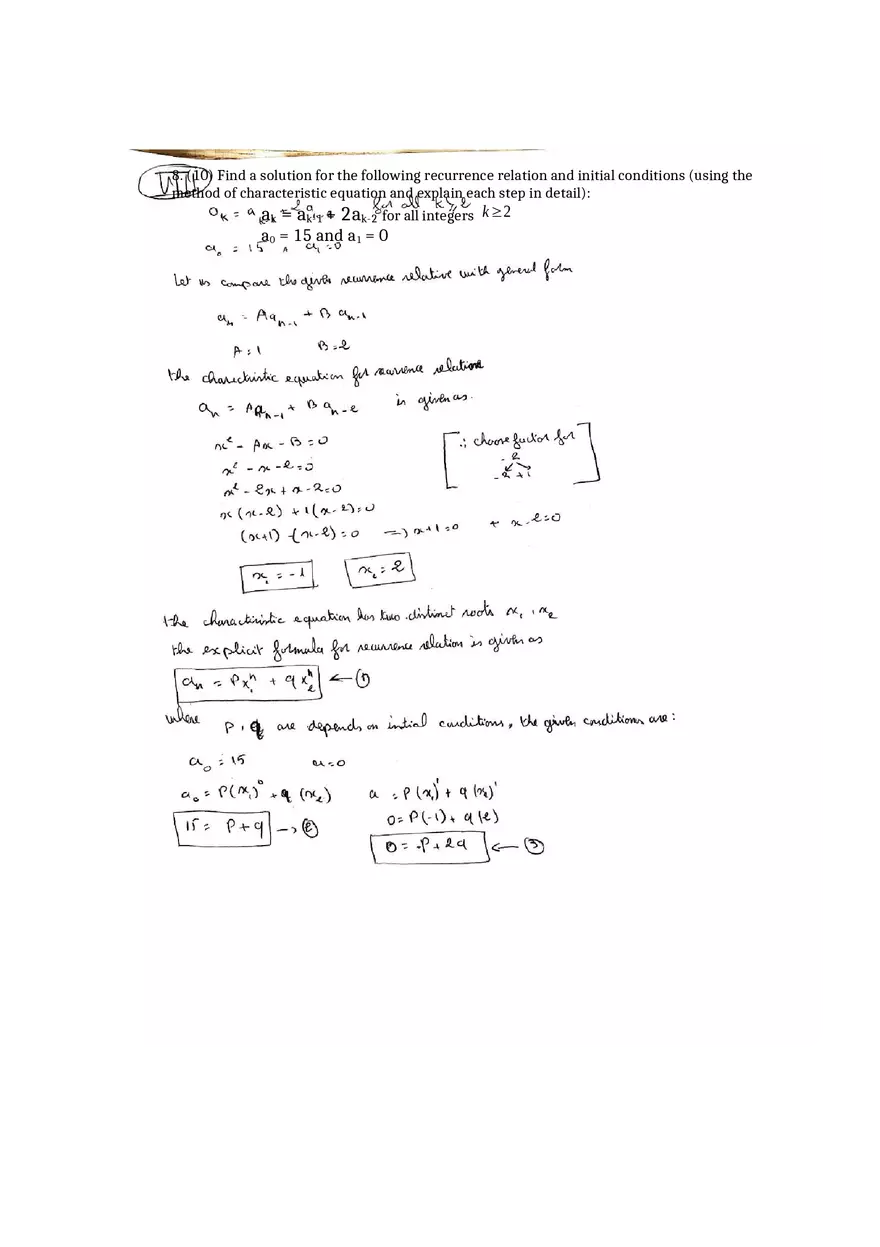 8. (10) Find a solution for the following recurrence relation and initial conditions (using the
method of characteristic equation and explain each step in detail):
for all k ≥ 2
aₖ = aₖ₋₁ + 2aₖ₋₂ for all integers k ≥ 2
a₀ = 15 and a₁ = 0
a₀ = 15 , a₁ = 0
Let us compare the given recurrence relative with general form
aₙ = Aaₙ₋₁ + B aₙ₋₁
A = 1 B = 2
the charectristic equation for recurrence relation
aₙ = Aaₙ₋₁ + B aₙ₋₂ is given as.
x² - Ax - B = 0
∴ choose factor for
x² - x - 2 = 0
-2
-2 +1
x² - 2x + x - 2 = 0
x(x-2) + 1(x-2) = 0
(x+1) (x-2) = 0 ⇒ x+1 = 0 + x-2 = 0
x₁ = -1 x₂ = 2
the characteristic equation has two distinct roots x₁, x₂
the explicit formula for recurrence relation is given as
aₙ = Px₁ⁿ + qx₂ⁿ ← ①
where P, q are depends on intial conditions, the given conditions are:
a₀ = 15 a = 0
a₀ = P(x₁)⁰ + q(x₂) a = P(x₁)¹ + q(x₂)¹
15 = P + q → ② 0 = P(-1) + q(2)
0 = -P + 2q ← ③